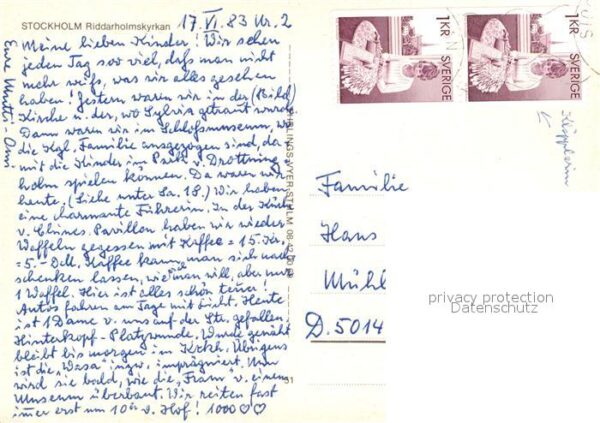 STOCKHOLM Riddarholmskyrkan
17. VI. 83 Nr. 2
Meine lieben Kinder! Wir sehen
jeden Tag soo viel, daß man nicht
mehr weiß, was wir alles gesehen
haben! Gestern waren wir in der (Bild)
Kirche u. der, wo Sylvia getraut wurde.
Dann waren wir im Schloßmuseum, wo
die Kgl. Familie ausgezogen sind, da-
mit die Kinder im Park v. Drottning
holm spielen können. Da waren wir
heute. (Siehe unter Sa. 18.) Wir haben
eine charmante Führerin. In der Küche
v. Chines. Pavillon haben wir wieder
Waffeln gegessen mit Kaffee = 15.- Kr.
= 5.- DM. Kaffee kann man sich nach-
schenken lassen, wie man will, aber nur
1 Waffel. Hier ist alles schön teuer!
Autos fahren am Tage mit Licht. Heute
ist 1 Dame v. uns auf der Str. gefallen
Hinterkopf-Platzwunde, Wunde genäht
bleibt bis morgen in Krkh. Übrigens
ist die "Wasa" imprägniert. Nun
wird sie bald, wie die "Fram" v. einem
Museum überbaut. Wir reisen fast
immer erst um 10 Uhr v. Hof! 1000 ♡♡
Eure Mutti-Omi
1 KR SVERIGE
1 KR SVERIGE
Familie
Hans
Mühl
D. 5014
privacy protection
Datenschutz